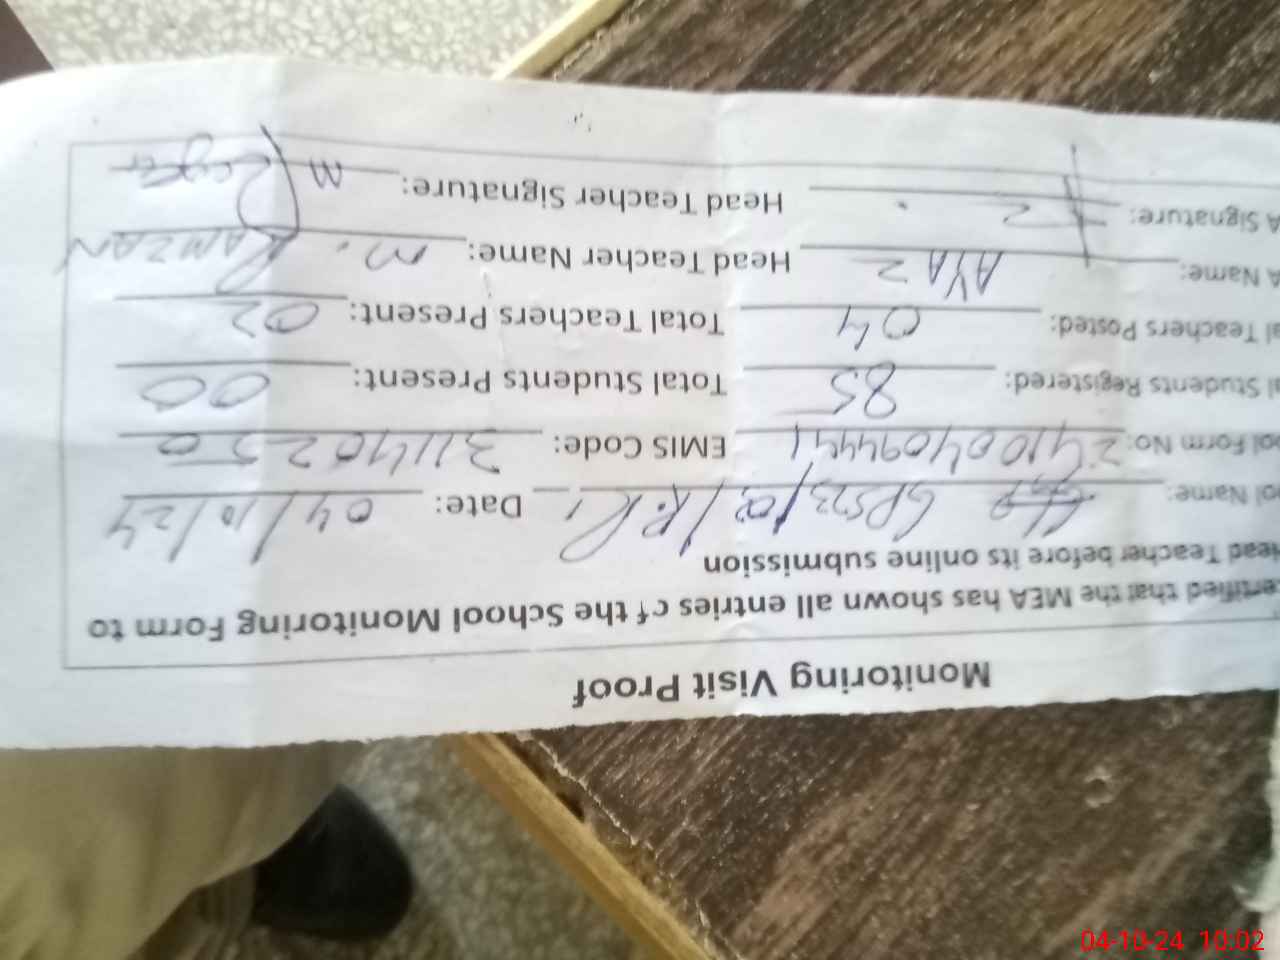 Monitoring Visit Proof
ertified that the MEA has shown all entries of the School Monitoring Form to
Head Teacher before its online submission
ol Name: GPS 23/ Date: 04/10/24
ool Form No: 241004094441 EMIS Code: 31140250
al Students Registered: 85 Total Students Present: 00
al Teachers Posted: 04 Total Teachers Present: 02
A Name: AYAZ Head Teacher Name: M. RAMZAN
A Signature: Head Teacher Signature: M
04-10-24 10:02